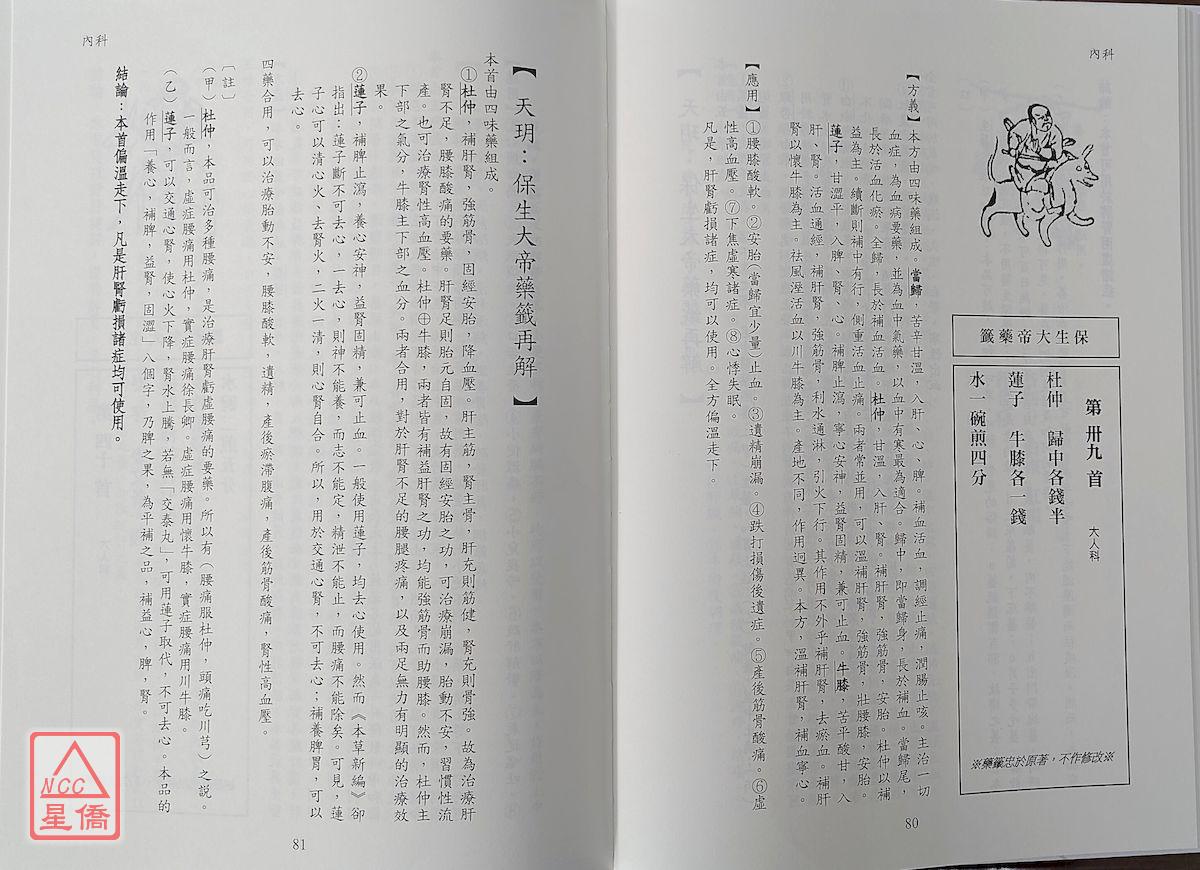 內科
保生大帝藥籤
第卅九首　大人科
杜仲　歸中各錢半
蓮子　牛膝各一錢
水一碗煎四分
※藥籤忠於原著，不作修改※
【方義】本方由四味藥組成。當歸，苦辛甘溫，入肝、心、脾。補血活血，調經止痛，潤腸止咳。主治一切
血症，為血病要藥，並為血中氣藥，以血中有寒最為適合。歸中，即當歸身，長於補血。當歸尾，
長於活血化瘀。全歸，長於補血活血。杜仲，甘溫，入肝、腎。補肝腎，強筋骨，安胎。杜仲以補
益為主。續斷則補中有行，側重活血止痛。兩者常並用，可以溫補肝腎，強筋骨，壯腰膝，安胎。
蓮子，甘澀平，入脾、腎、心。補脾止瀉，寧心安神，益腎固精，兼可止血。牛膝，苦平酸甘，入
肝、腎。活血通經，補肝腎，強筋骨，利水通淋，引火下行。其作用不外乎補肝腎，去瘀血。補肝
腎以懷牛膝為主。祛風溼活血以川牛膝為主。產地不同，作用迥異。本方，溫補肝腎，補血寧心。
【應用】①腰膝酸軟。②安胎（當歸宜少量）止血。③遺精崩漏。④跌打損傷後遺症。⑤產後筋骨酸痛。⑥虛
性高血壓。⑦下焦虛寒諸症。⑧心悸失眠。
凡是，肝腎虧損諸症，均可以使用。全方偏溫走下。
80
內科
【天玥：保生大帝藥籤再解】
本首由四味藥組成。
①杜仲，補肝腎，強筋骨，固經安胎，降血壓。肝主筋，腎主骨，肝充則筋健，腎充則骨強。故為治療肝
腎不足，腰膝酸痛的要藥。肝腎足則胎元自固，故有固經安胎之功，可治療崩漏，胎動不安，習慣性流
產。也可治療腎性高血壓。杜仲⊕牛膝，兩者皆有補益肝腎之功，均能強筋骨而助腰膝。然而，杜仲主
下部之氣分，牛膝主下部之血分。兩者合用，對於肝腎不足的腰腿疼痛，以及兩足無力有明顯的治療效
果。
②蓮子，補脾止瀉，養心安神，益腎固精，兼可止血。一般使用蓮子，均去心使用。然而《本草新編》卻
指出：蓮子斷不可去心，一去心，則神不能養，而志不能定，精泄不能止，而腰痛不能除矣。可見，蓮
子心可以清心火、去腎火，二火一清，則心腎自合。所以，用於交通心腎，不可去心；補養脾胃，可以
去心。
四藥合用，可以治療胎動不安，腰膝酸軟，遺精，產後瘀滯腹痛，產後筋骨酸痛，腎性高血壓。
〔註〕
（甲）杜仲，本品可治多種腰痛，是治療肝腎虧虛腰痛的要藥。所以有（腰痛服杜仲，頭痛吃川芎）之說。
一般而言，虛症腰痛用杜仲，實症腰痛徐長卿。虛症腰痛用懷牛膝，實症腰痛用川牛膝。
（乙）蓮子，可以交通心腎，使心火下降，腎水上騰，若無「交泰丸」，可用蓮子取代，不可去心。本品的
作用「養心，補脾，益腎，固澀」八個字，乃脾之果，為平補之品，補益心，脾，腎。
結論：本首偏溫走下，凡是肝腎虧損諸症均可使用。
81
NCC
星僑